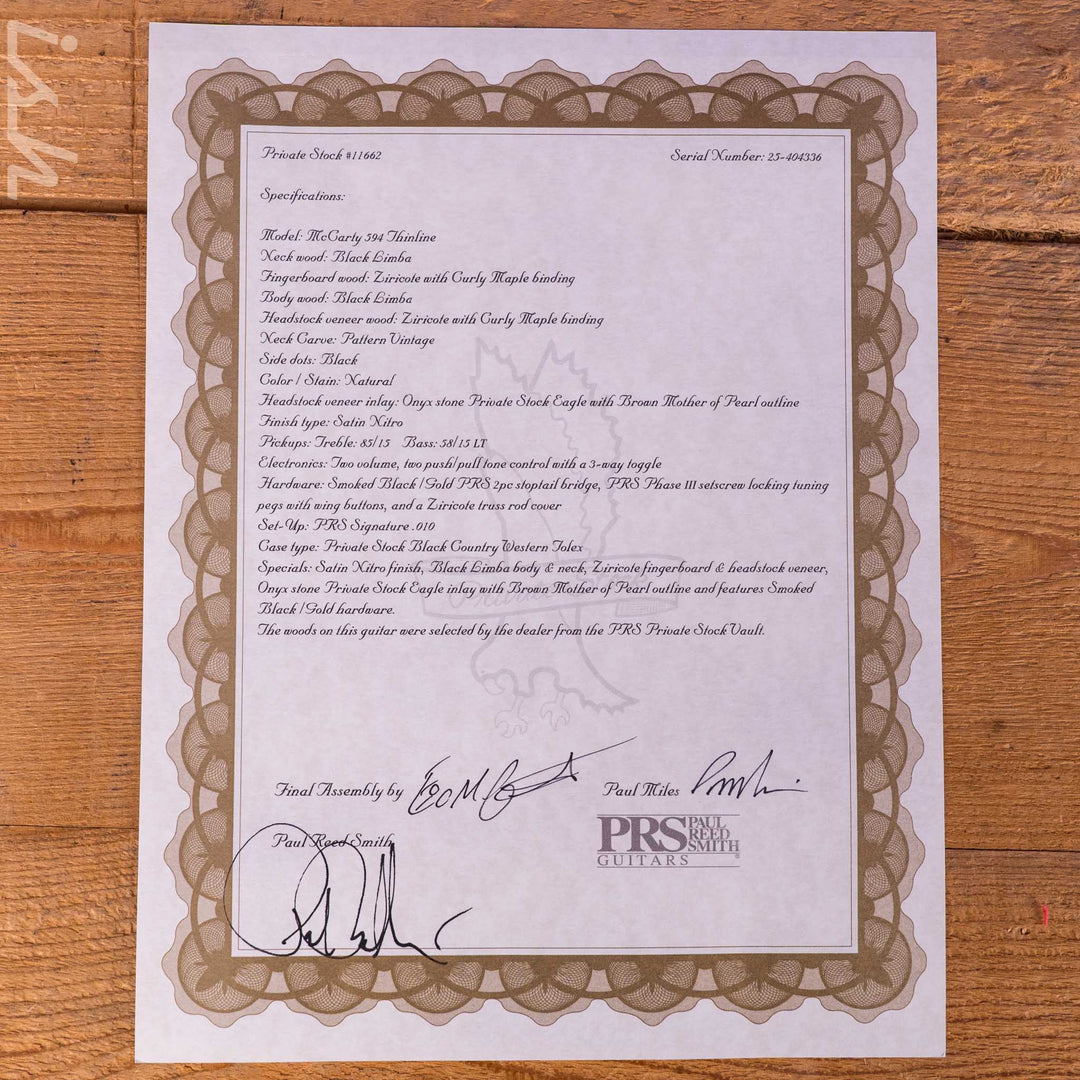 ish
Private Stock #11662
Serial Number: 25-404336
Specifications:
Model: McCarty 594 Thinline
Neck wood: Black Limba
Fingerboard wood: Ziricote with Curly Maple binding
Body wood: Black Limba
Headstock veneer wood: Ziricote with Curly Maple binding
Neck Carve: Pattern Vintage
Side dots: Black
Color / Stain: Natural
Headstock veneer inlay: Onyx stone Private Stock Eagle with Brown Mother of Pearl outline
Finish type: Satin Nitro
Pickups: Treble: 85/15 Bass: 58/15 LT
Electronics: Two volume, two push/pull tone control with a 3-way toggle
Hardware: Smoked Black / Gold PRS 2pc stoptail bridge, PRS Phase III setscrew locking tuning
pegs with wing buttons, and a Ziricote truss rod cover
Set-Up: PRS Signature .010
Case type: Private Stock Black Country Western Tolex
Specials: Satin Nitro finish, Black Limba body & neck, Ziricote fingerboard & headstock veneer,
Onyx stone Private Stock Eagle inlay with Brown Mother of Pearl outline and features Smoked
Black / Gold hardware.
The woods on this guitar were selected by the dealer from the PRS Private Stock Vault.
Final Assembly by
Paul Miles
Paul Reed Smith
PRS PAUL
REED
SMITH
GUITARS